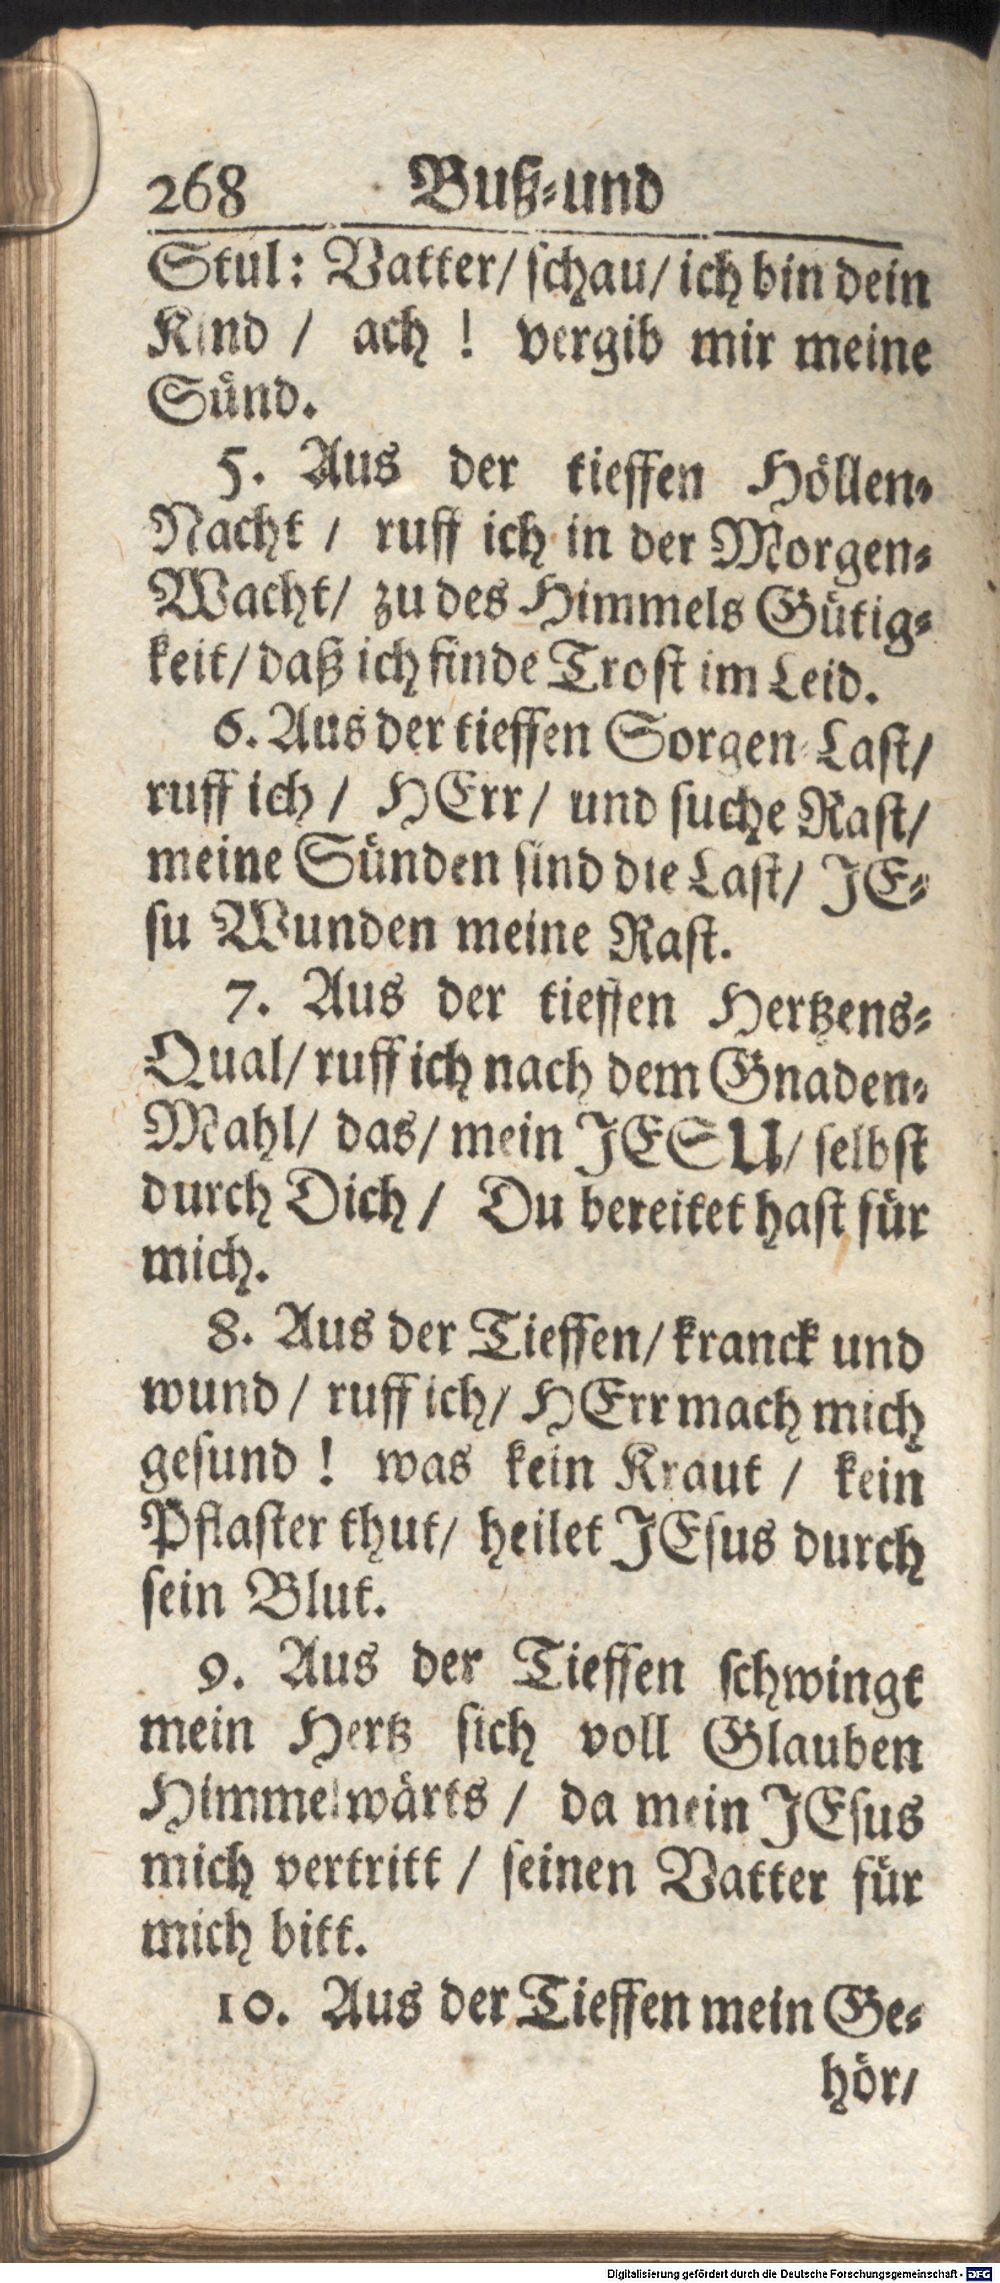 268 Buß-und
Stul: Vatter/ schau/ ich bin dein
Kind / ach ! vergib mir meine
Sünd.
5. Aus der tieffen Höllen-
Nacht / ruff ich in der Morgen-
Wacht/ zu des Himmels Gütig-
keit/ daß ich finde Trost im Leid.
6. Aus der tieffen Sorgen-Last/
ruff ich / HErr/ und suche Rast/
meine Sünden sind die Last/ JE-
su Wunden meine Rast.
7. Aus der tieffen Hertzens-
Qual/ ruff ich nach dem Gnaden-
Mahl/ das/ mein JESU/ selbst
durch Dich / Du bereitet hast für
mich.
8. Aus der Tieffen/ kranck und
wund / ruff ich/ HErr mach mich
gesund ! was kein Kraut / kein
Pflaster thut/ heilet JEsus durch
sein Blut.
9. Aus der Tieffen schwingt
mein Hertz sich voll Glauben
Himmelwärts / da mein JEsus
mich vertritt / seinen Vatter für
mich bitt.
10. Aus der Tieffen mein Ge-
hör/
Digitalisierung gefördert durch die Deutsche Forschungsgemeinschaft - DFG